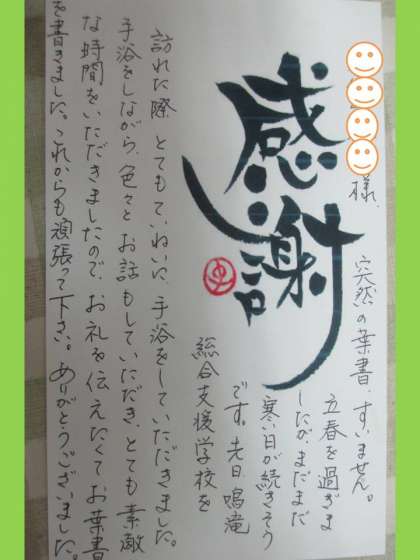 様
感謝
突然の葉書、すいません。
立春を過ぎま
したがまだまだ
寒い日が続きそう
です。先日、鳴滝
総合支援学校を
訪れた際、とてもていねいに、手浴をしていただきました。
手浴をしながら、色々とお話もしていただき、とても素敵
な時間をいただきましたので、お礼を伝えたくてお葉書
を書きました。これからも頑張って下さい。ありがとうございました。